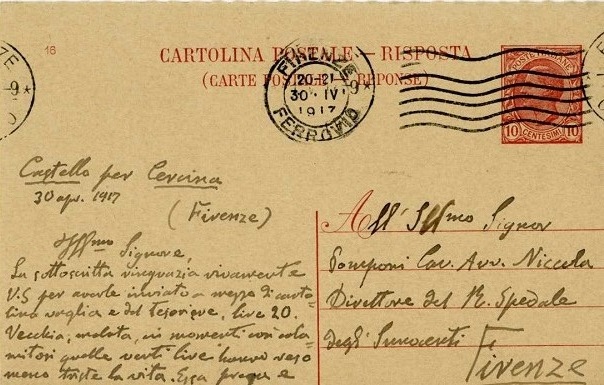 16
CARTOLINA POSTALE - RISPOSTA
(CARTE POSTALE - RÉPONSE)
FIRENZE
20-21
30·IV
1917
FERROVIA
POSTE ITALIANE
10 CENTESIMI 10
Castello per Cercina
30 apr. 1917
(Firenze)
Ill/mo Signore,
La sottoscritta ringrazia vivamente
V.S per averle inviato a mezzo di carto-
lina vaglia e del tesoriere, lire 20.
Vecchia, malata, in momenti così cala-
mitosi quelle venti lire hanno reso
meno triste la vita. Essa prega e
All' Ill/mo Signor
Pomponi Cav. Avv. Niccola
Direttore del R. Spedale
degli Innocenti
Firenze